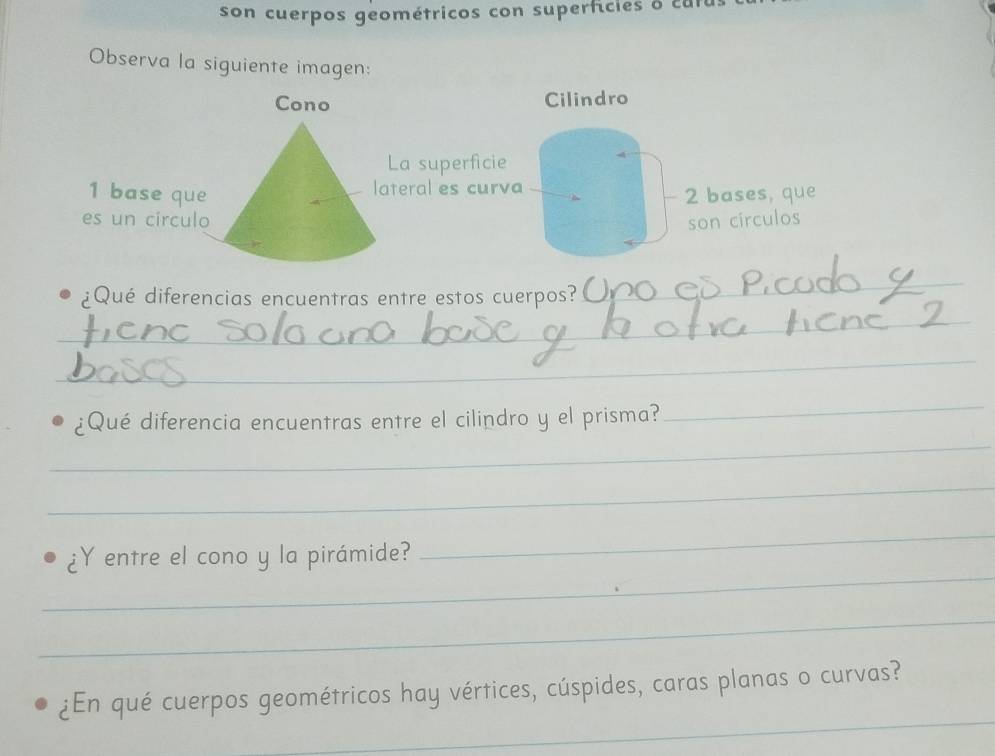 son cuerpos geométricos con superficies o caras
Observa la siguiente imagen:
Cono
Cilindro
La superficie
lateral es curva
1 base que
es un círculo
2 bases, que
son círculos
¿Qué diferencias encuentras entre estos cuerpos? Uno es Picudo y
tiene solo una base y la otra tiene 2
bases
¿Qué diferencia encuentras entre el cilindro y el prisma?
¿Y entre el cono y la pirámide?
¿En qué cuerpos geométricos hay vértices, cúspides, caras planas o curvas?